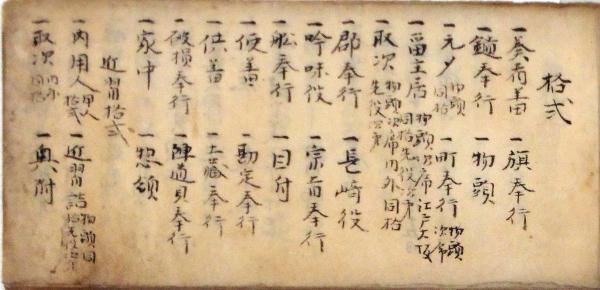 格式
一奏者番 一旗奉行
一鎗奉行 一物頭
一元〆 物頭同格 一町奉行 物頭次席
一留主居 物頭次席江戸大坂同格先役次第
一取次 物頭次席内外同格先役次第
一郡奉行 一長崎役
一吟味役 一宗旨奉行
一舩奉行 一目付
一使番 一勘定奉行
一供番 一土蔵奉行
一破損奉行 一陣道具奉行
一家中 一惣領
近習格式
一内用人 用人格式 一近習詰 物頭同格先役次第
一取次 内外同格 一奥附